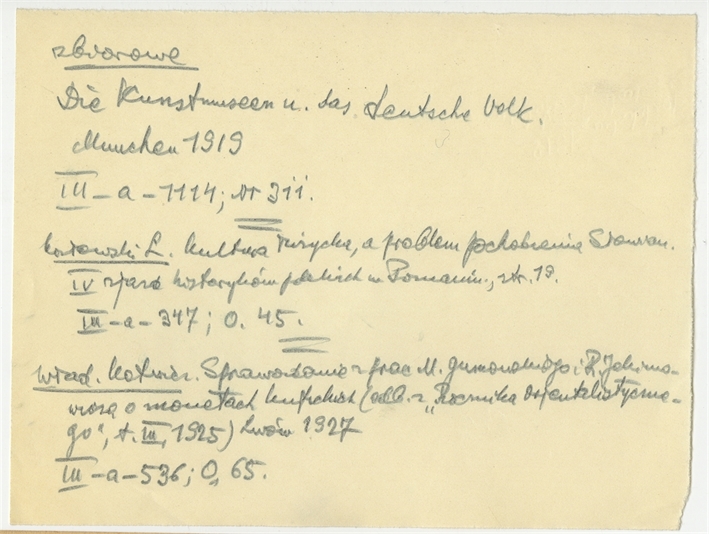 zbiorowe
Die Kunstmuseen u. das deutsche Volk.
Munchen 1919
III – a – 1114; nr 311.
Kozłowski L. Kultura łużycka, a problem pochodzenia Słowian.
IV zjazd historyków polskich w Poznaniu, str. 19.
III – a – 347; O. 45.
Wład. Kotwicz. Sprawozdanie z prac M. Gumowskiego i R. Jakimo-
wicza o monetach kufickich (odb. z „Rocznika Orjentalistyczne-
go", t. III, 1925) Lwów 1927
III – a – 536; O, 65.